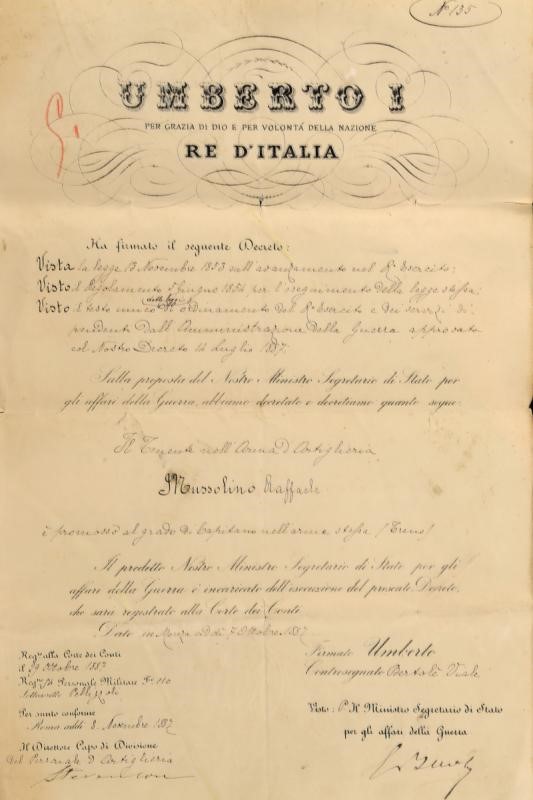 Nº 135
UMBERTO I
PER GRAZIA DI DIO E PER VOLONTÀ DELLA NAZIONE
RE D'ITALIA
Ha firmato il seguente Decreto:
Vista la legge 13 Novembre 1853 sull'avanzamento nel Rº Esercito;
Visto il Regolamento Giugno 1854, per l'eseguimento della legge stessa;
delle leggi
Visto il testo unico di ordinamento del Rº Esercito e dei servizi di-
pendenti dall'Amministrazione della Guerra approvato
col Nostro Decreto 14 Luglio 1887.
Sulla proposta del Nostro Ministro Segretario di Stato per
gli affari della Guerra, abbiamo decretato e decretiamo quanto segue:
Il Tenente nell'Arma d'Artiglieria
Mussolino Raffaele
è promosso al grado di Capitano nell'arma stessa (Treno)
Il predetto Nostro Ministro Segretario di Stato per gli
affari della Guerra è incaricato dell'esecuzione del presente Decreto,
che sarà registrato alla Corte dei Conti.
Dato in Monza addì 7 Ottobre 1887
Firmato Umberto
Controsegnato Bertolè Viale
Visto: Pº Il Ministro Segretario di Stato
per gli affari della Guerra
Regto alla Corte dei Conti
il 29 Ottobre 1887
Regro Personale Militare Fº 110
Per sunto conforme
Roma addì 8 Novembre 1887
Il Direttore Capo di Divisione
del Personale d'Artiglieria